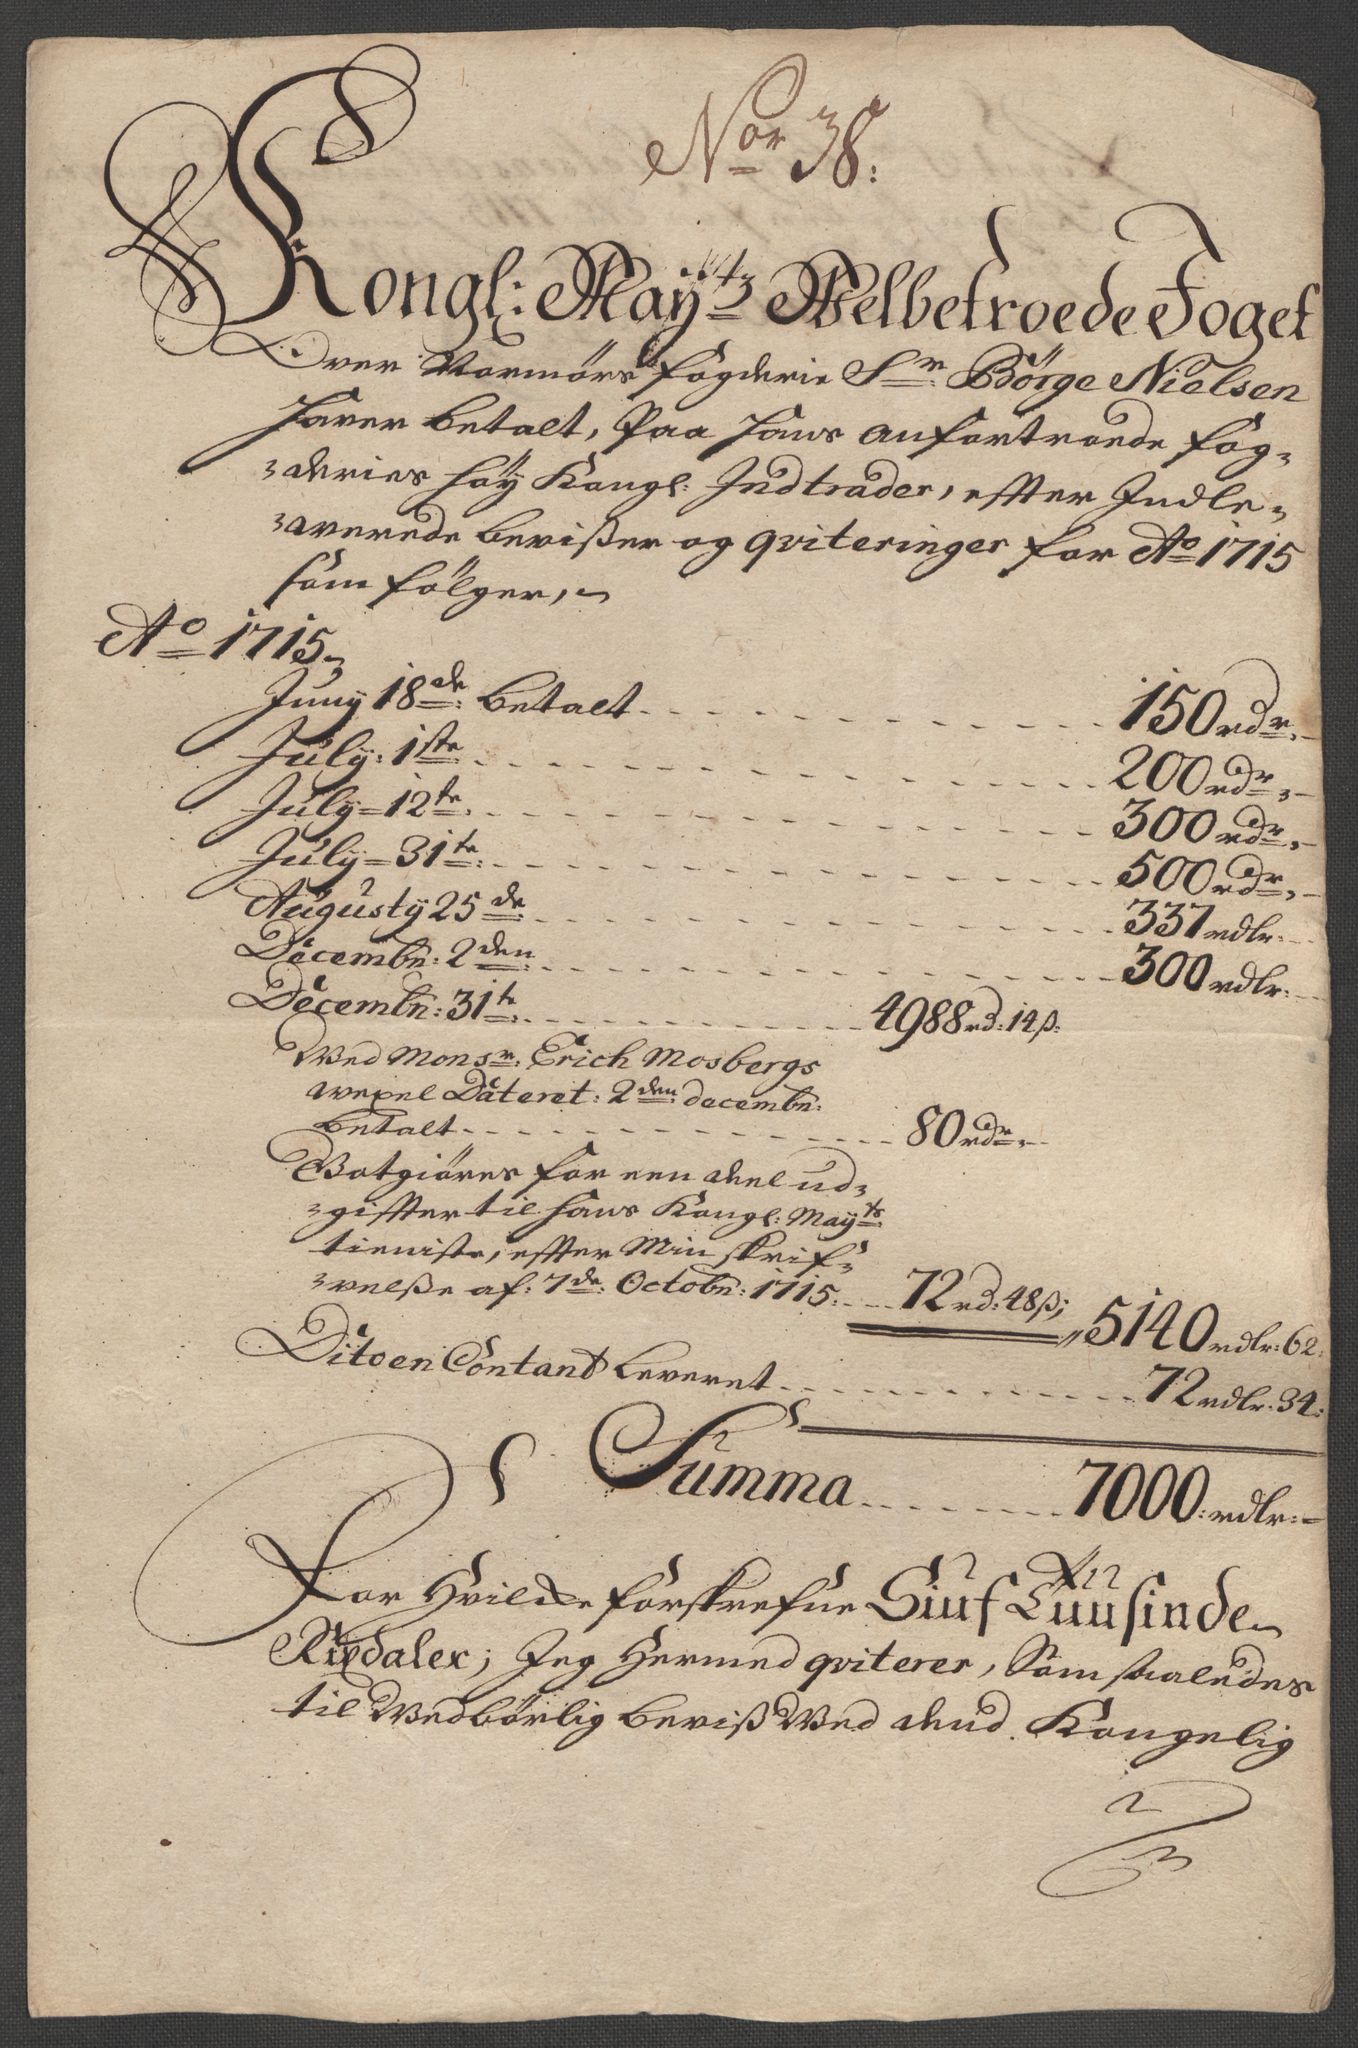 Nor 38:
Kongl: Mayts Welbetroede Foget
Over Normørs fogderie Sr Børge Nielsen
Hafver betalt, Paa Hans anfortroede fog-
-deries höÿ Kongl: Indtrader, effter Indle-
-werede bevißer og qviteringer for Ao 1715
som følger,
Ao 1715
Junÿ 18de: betalt 150 rdr,
Julÿ: 1ste 200 rdr,
Julÿ = 12te 300 rdr,
Julÿ = 31te 500 rdr,
Augustÿ 25de 337 rdlr:
Decembr: 2den 300 rdlr:
Decembr: 31te 4988 rd: 14 ß:
Wed Monsr: Erich Mosbergs
wexel Dateret: 2den decembr:
betalt 80 rdr,
Gotgiøres for een deel ud-
-giffter til Hans Kongl: Mayts
tieniste, effter Min skrif-
-velße af: 7de Octobr: 1715 72 rd: 48 ß; 5140 rdlr: 62:
Ditoen Contant leveret 72 rdlr: 34:
Summa 7000: rdlr:
For Hvilcke forskrefne Siuf Tuusinde
Rixdaler; Jeg Hermed qviterer, Som saaledes
til Wedbørlig beviß Wed dend Kongelig